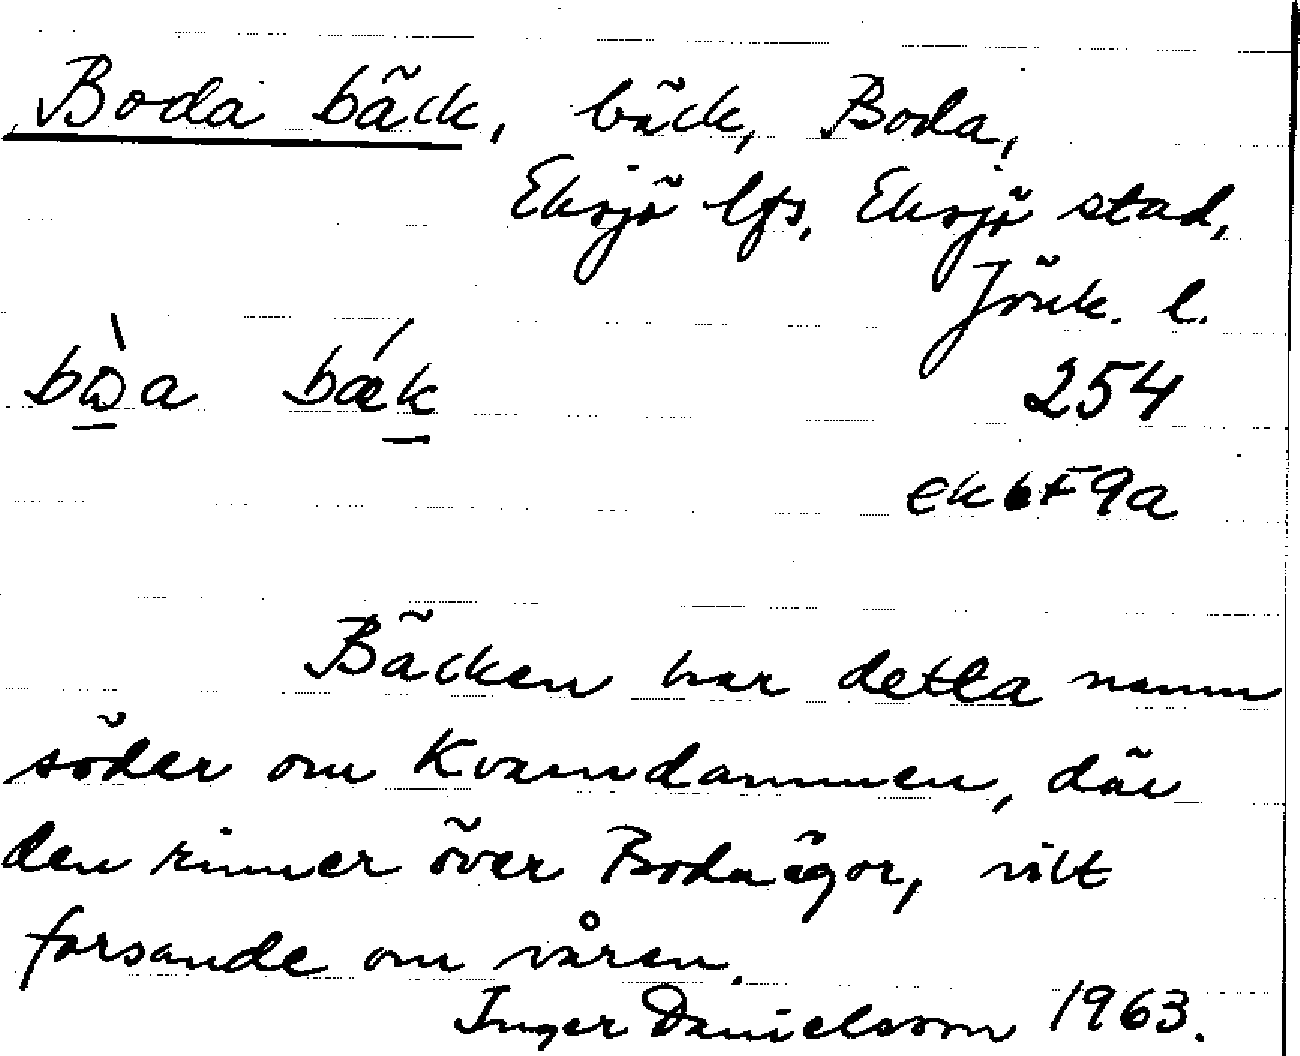 Boda bäck, bäck, Boda,
Eksjö lfs, Eksjö stad,
Jönk. l.
bæk 254
ek 6F9a
Bäcken har detta namn
söder om Kvarndammen, där
den rinner över Boda ägor, vilt
forsande om våren.
Inger Danielsson 1963.